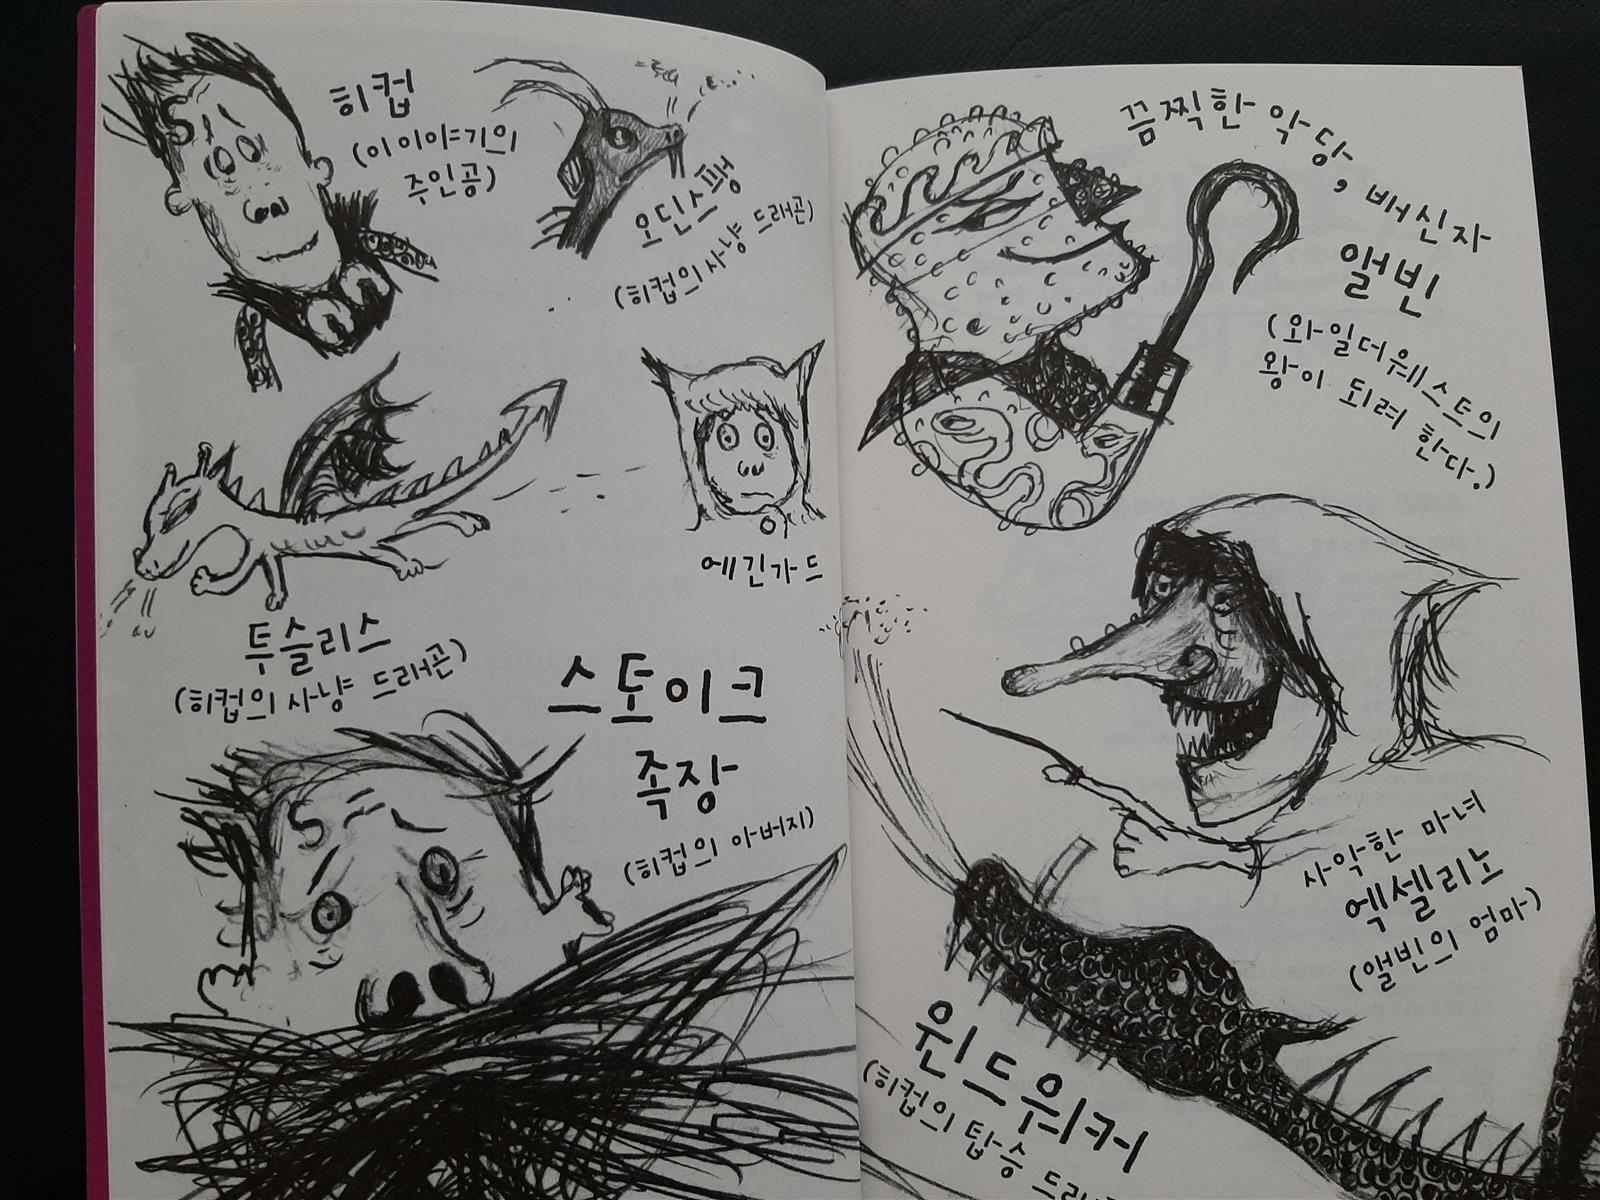 히컵
(이 이야기의
주인공)
오딘스팽
(히컵의 사냥 드래곤)
에긴가드
투슬리스
(히컵의 사냥 드래곤)
스토이크
족장
(히컵의 아버지)
끔찍한 악당, 배신자
앨빈
(와일더웨스트의
왕이 되려 한다.)
사악한 마녀
엑셀리노
(앨빈의 엄마)
윈드워커
(히컵의 탑승